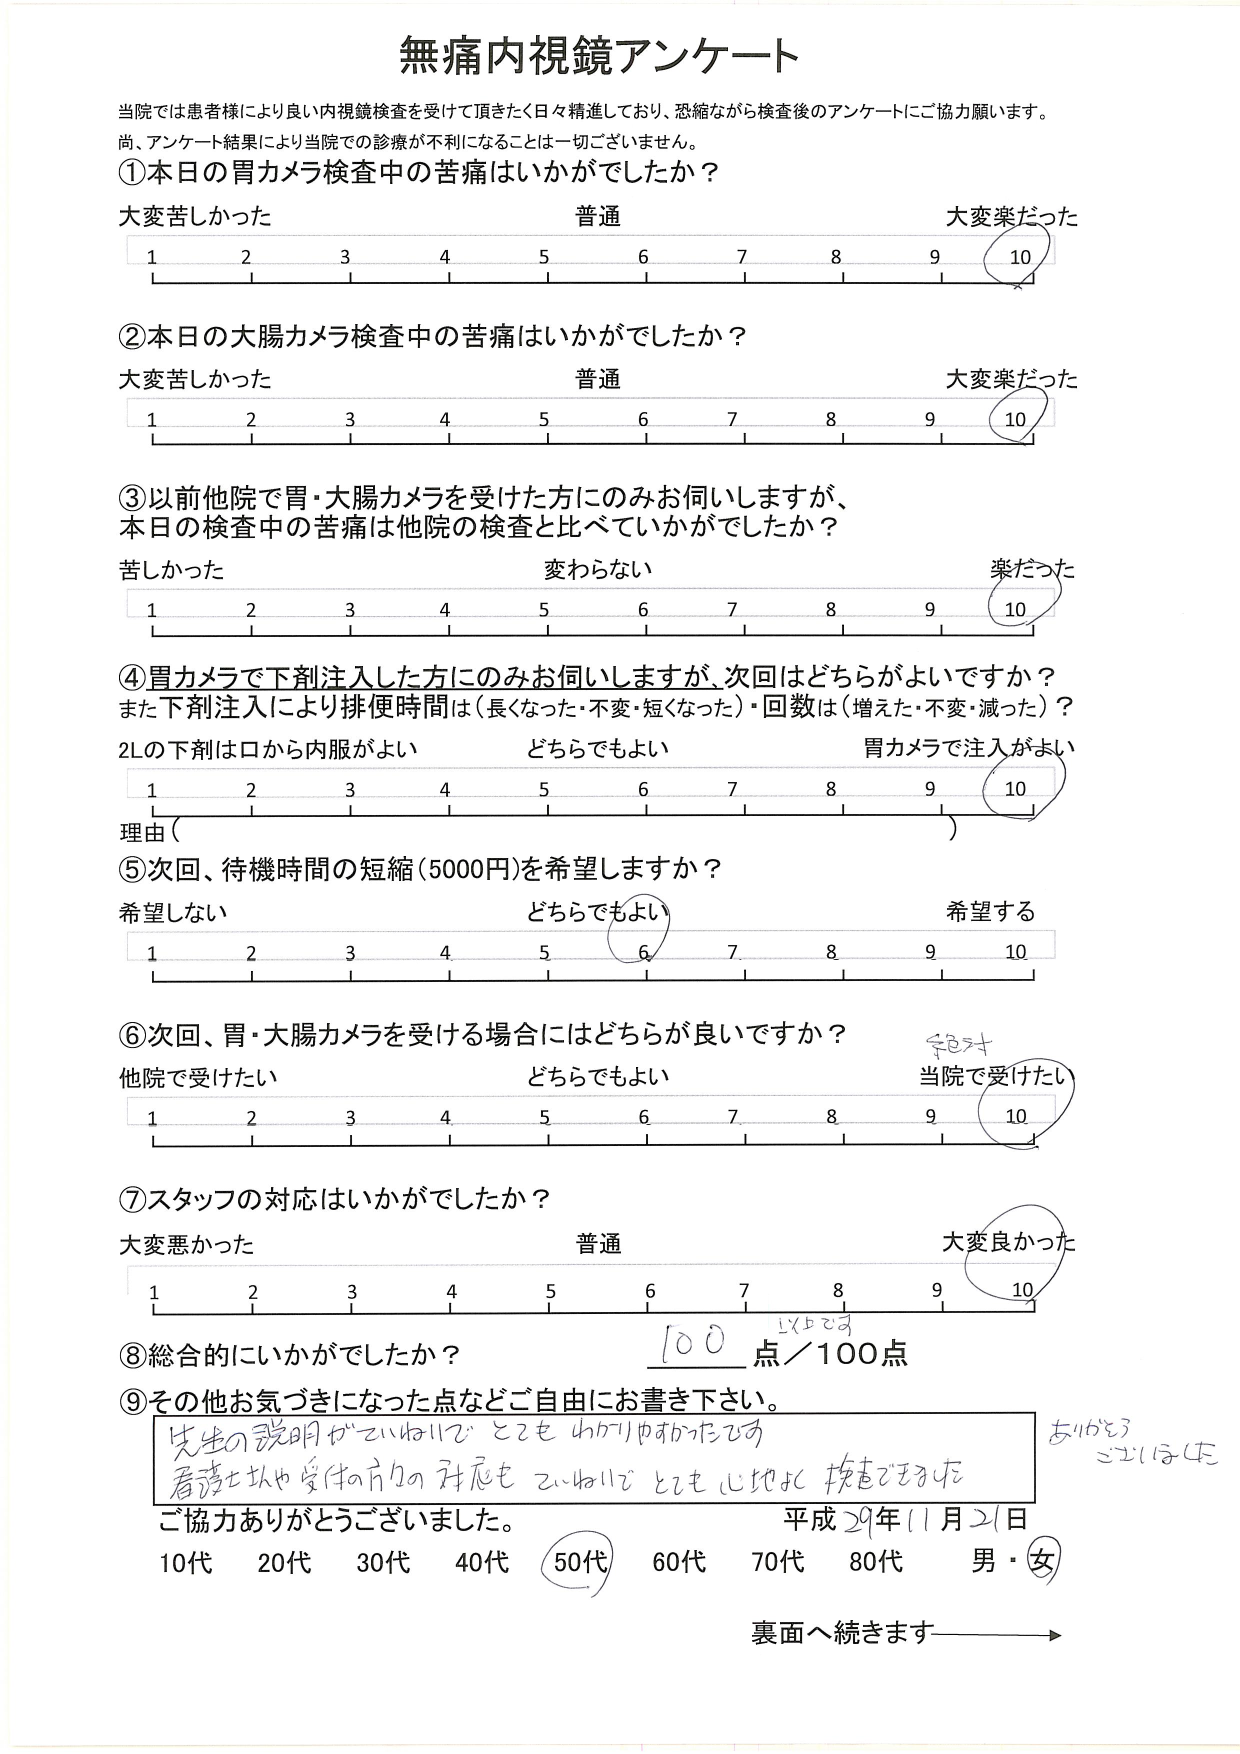 無痛内視鏡アンケート
当院では患者様により良い内視鏡検査を受けて頂きたく日々精進しており、恐縮ながら検査後のアンケートにご協力願います。
尚、アンケート結果により当院での診療が不利になることは一切ございません。
①本日の胃カメラ検査中の苦痛はいかがでしたか？
大変苦しかった 普通 大変楽だった
1 2 3 4 5 6 7 8 9 10
②本日の大腸カメラ検査中の苦痛はいかがでしたか？
大変苦しかった 普通 大変楽だった
1 2 3 4 5 6 7 8 9 10
③以前他院で胃・大腸カメラを受けた方にのみお伺いしますが、
本日の検査中の苦痛は他院の検査と比べていかがでしたか？
苦しかった 変わらない 楽だった
1 2 3 4 5 6 7 8 9 10
④胃カメラで下剤注入した方にのみお伺いしますが、次回はどちらがよいですか？
また下剤注入により排便時間は（長くなった・不変・短くなった）・回数は（増えた・不変・減った）？
2Lの下剤は口から内服がよい どちらでもよい 胃カメラで注入がよい
1 2 3 4 5 6 7 8 9 10
理由（ ）
⑤次回、待機時間の短縮（5000円）を希望しますか？
希望しない どちらでもよい 希望する
1 2 3 4 5 6 7 8 9 10
⑥次回、胃・大腸カメラを受ける場合にはどちらが良いですか？
絶対
他院で受けたい どちらでもよい 当院で受けたい
1 2 3 4 5 6 7 8 9 10
⑦スタッフの対応はいかがでしたか？
大変悪かった 普通 大変良かった
1 2 3 4 5 6 7 8 9 10
以上です
⑧総合的にいかがでしたか？ 100 点／100点
⑨その他お気づきになった点などご自由にお書き下さい。
先生の説明がていねいで とても わかりやすかったです
看護士さんや受付の方々の 対応も ていねいで とても 心地よく 検査できました
ありがとう
ございました
ご協力ありがとうございました。 平成29年11月21日
10代 20代 30代 40代 50代 60代 70代 80代 男・女
裏面へ続きます